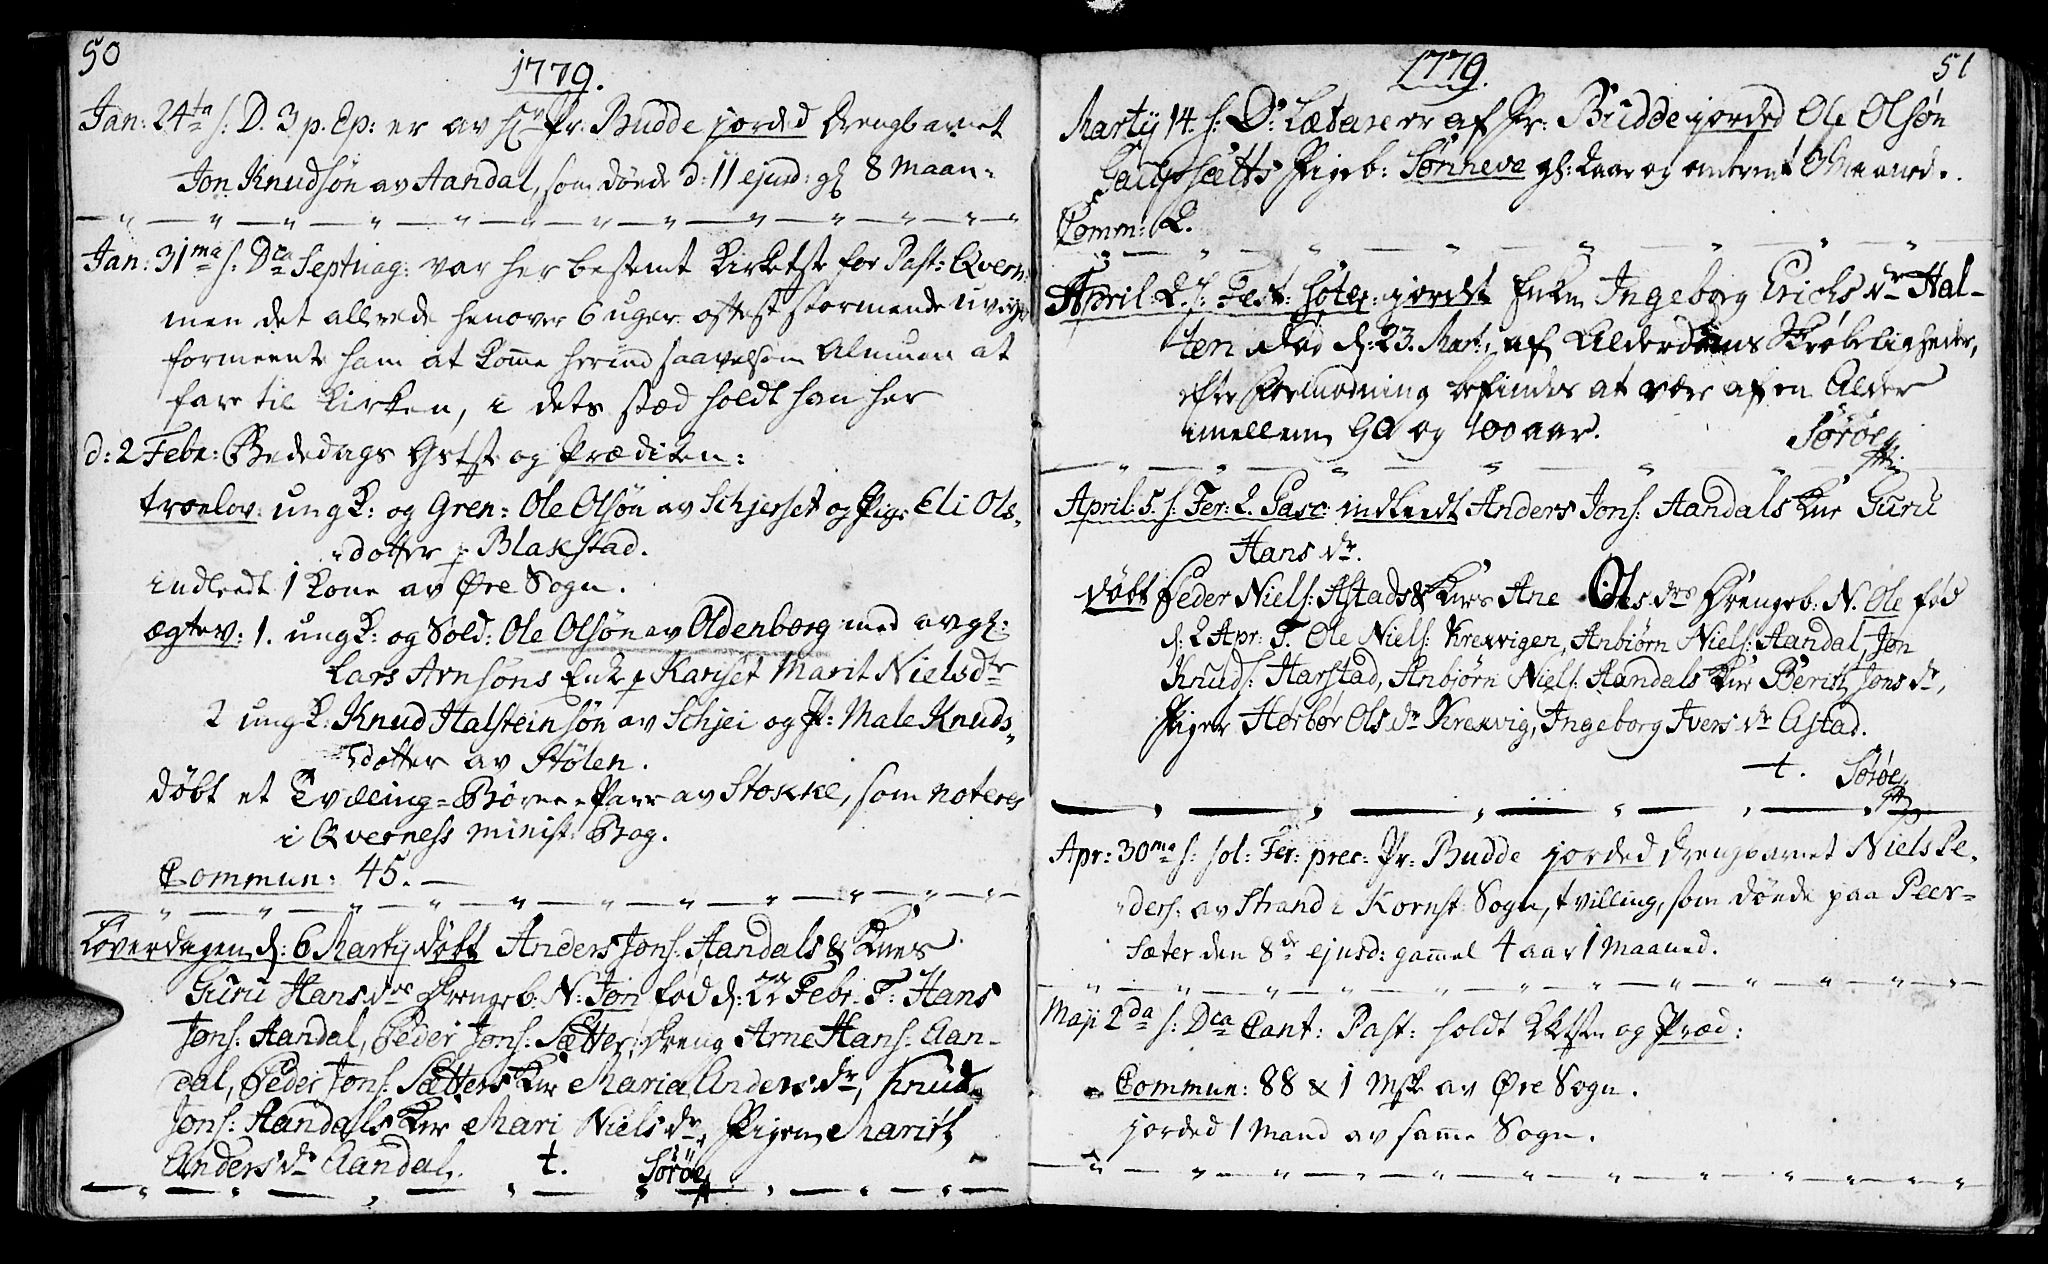 50
1779.
Jan: 24ta s: D. 3 p. Ep: er av Hr Pr. Budde jorded drengbarnet
Jon Knudsøn av Aandal, som døde d: 11 ejusd: gl 8 Maan:
Jan: 31ma s: Dca Septuag: var her bestemt Kirketste for Past: Qvern:
men det allerede henover 6 uger oftest stormende uveyr
formeente ham at komme herind saavelsom Almuen at
fare til Kirken, i dets stæd holdt han her
d: 2 Febr: Bededags Gstste og Prædiken:
troelov: ungk: og Gren: Ole Olsøn av Schjerset og Pige Eli Ols„
„dotter p Blakstad.
indleedt 1 Kone av Øre Sogn.
ægtev: 1. ungk: og Sold: Ole Olsøn av Oldenborg med avgl:
Lars Arnsøns Enke p Kanset Marit Nielsdtr
2 ungk: Knud Halsteinsøn av Schjei og P: Male Knuds„
„dotter av Stølen.
døbt et Tvilling=Børne=Parr av Stokke, som noteres
i Qverness minist: Bog.
Commun: 45.
Løverdagen d: 6 Martij døbt Anders Jons: Aandals & Knes
Guru Hans drs Drengeb. N: Jon fød d: 22 Febr. T: Hans
Jons: Aandal, Peder Jons: Sætter, dreng Arne Hans: Aan-
dal, Peder Jons: Sætters Kne Maria Anders dr, Knud
Jons: Aandals Kne Mari Niels dr, Pigen Marith
Anders dr Aandal. t. Sørøe
51
1779.
Martij 14. s: D: Lætare er af Pr: Budde jorded Ole Olsøn
Gaupsætts Pigeb: Sønneve gl: aar og omtrent 3 Maaned.
Comm: 2.
April: 2. s: Fest: jordt Enken Ingeborg Erichs dr Hal-
ten død d: 23. Mart: af Alderdoms Skrøbeligheder,
efter Formodning befindes at være af en Alder
imellem 90 og 100 aar. Sørøe
April: 5. s: Fer: 2. Pasc: indleedt Anders Jons: Aandals Kne Guru
Hans dr.
døbt Peder Niels: Astads & Knes Ane Ols drs Drengeb: N. Ole fød
d: 2 Apr: T. Ole Niels: Krexvigen, Anbiørn Niels: Aandal, Jon
Knuds: Harstad, Anbjørn Niels: Aandals Kne Berith Jons dr,
Piger Hørbør Ols dr Krexvig, Ingeborg Ivers dr Astad.
t. Sørøe
Apr: 30ma s: sol: Fer: prec: Pr: Budde jorded drengbarnet Niels Pe„
„ders: av Strand i Kornst: Sogn, tvilling, som døde paa Peer-
sæter den 8de ejusd: gammel 4 aar 1 Maaned.
Maji 2da s: Dca Cant: Past: holdt Kketste og Præd:
Commun: 88 & 1 Msk av Øre Sogn.
jorded 1 Mand av samme Sogn.